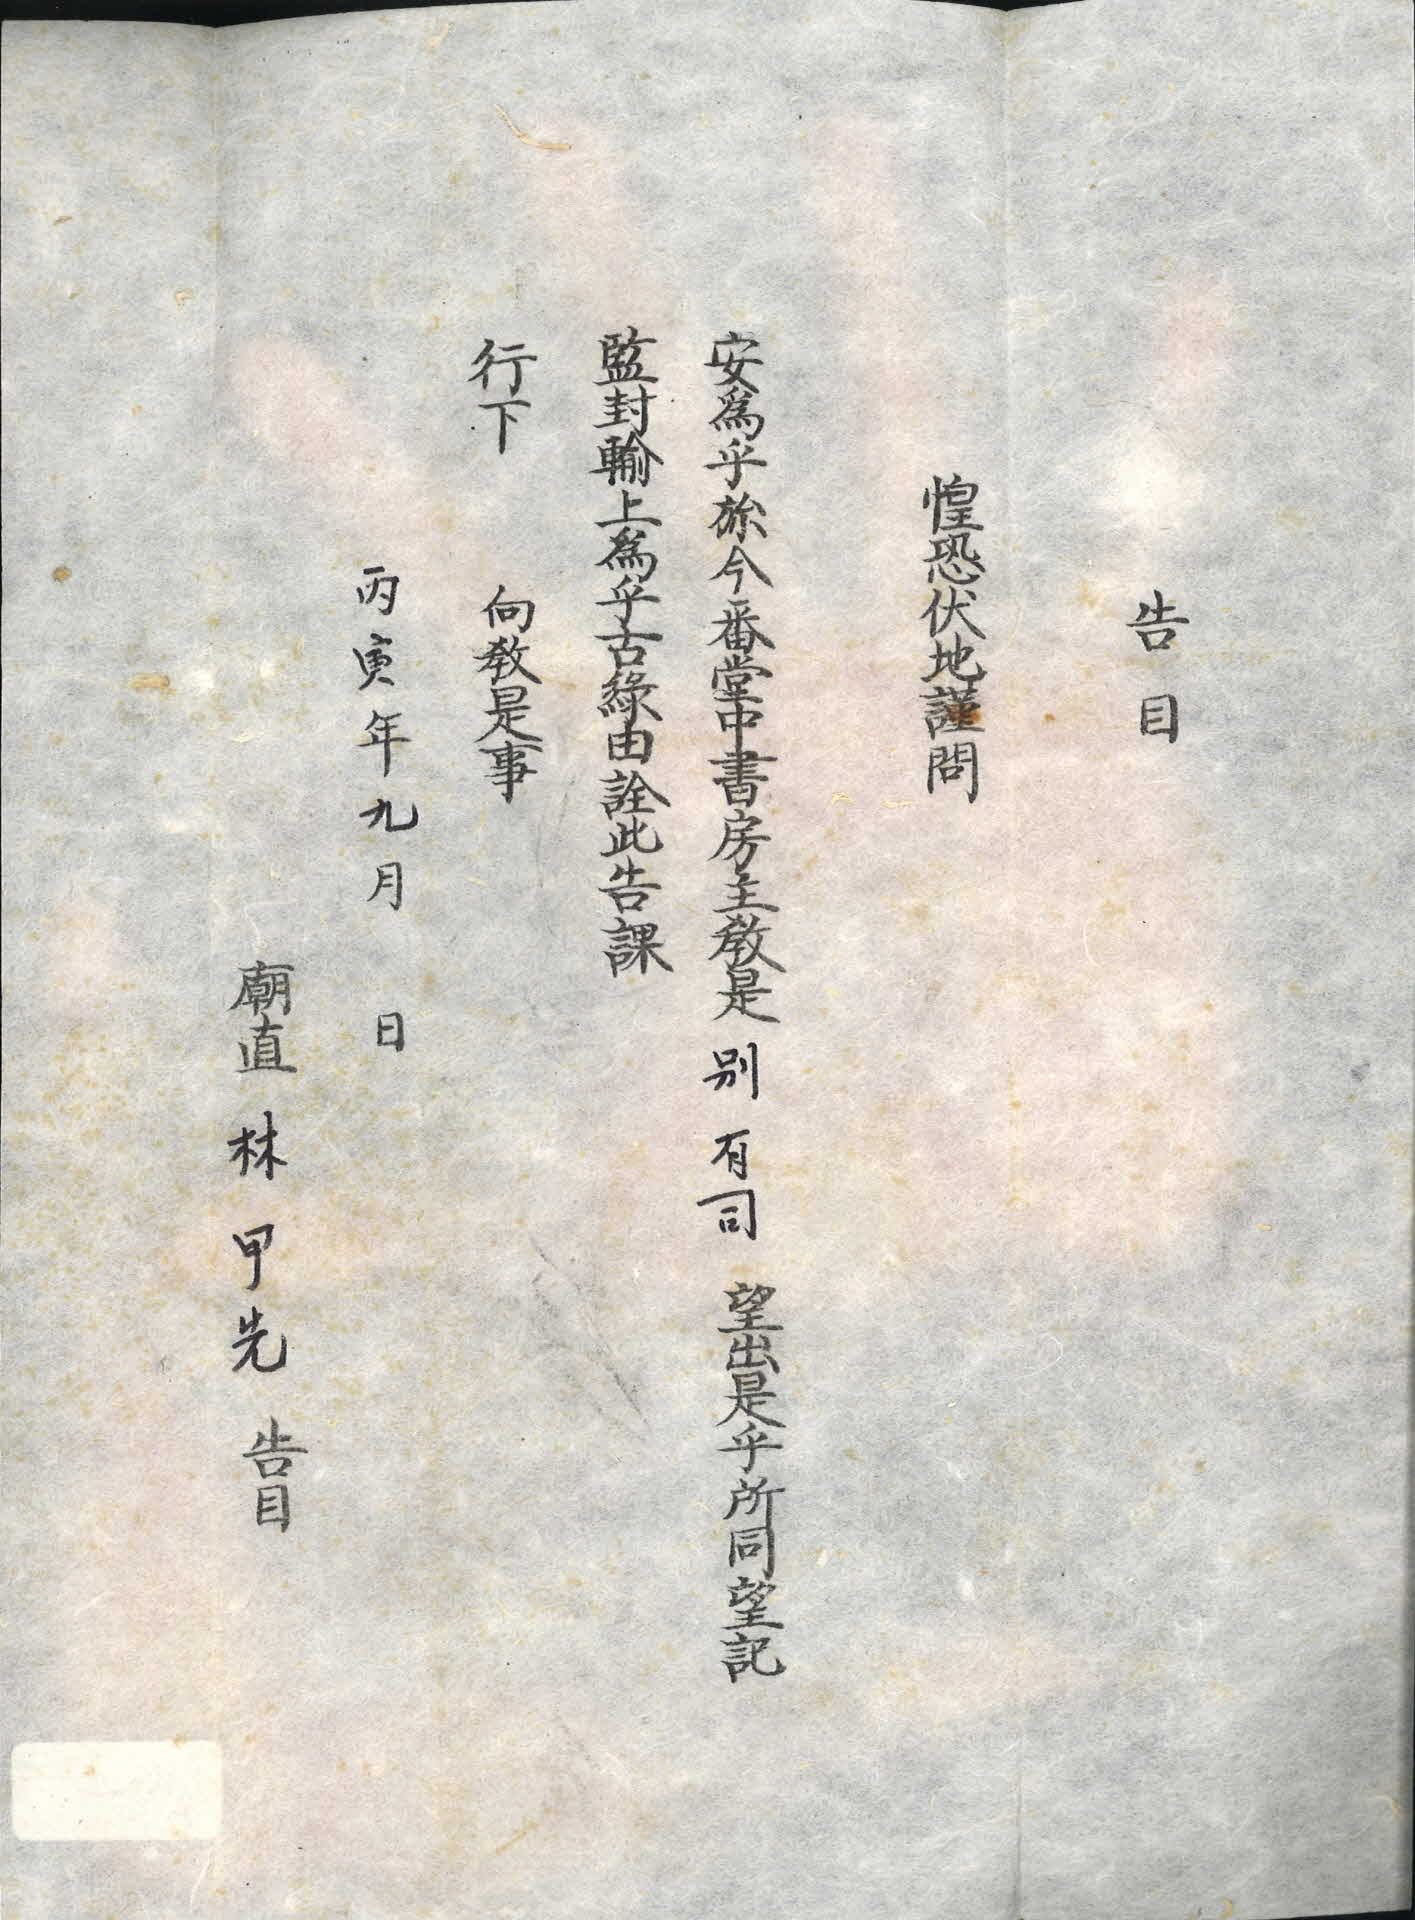 告目
惶恐伏地謹問
安爲乎旀今番堂中書房主敎是 別 有司 望出是乎所同望記
監封輸上爲乎古緣由詮此告課
行下 向敎是事
丙寅年九月 日
廟直 林 甲先 告目